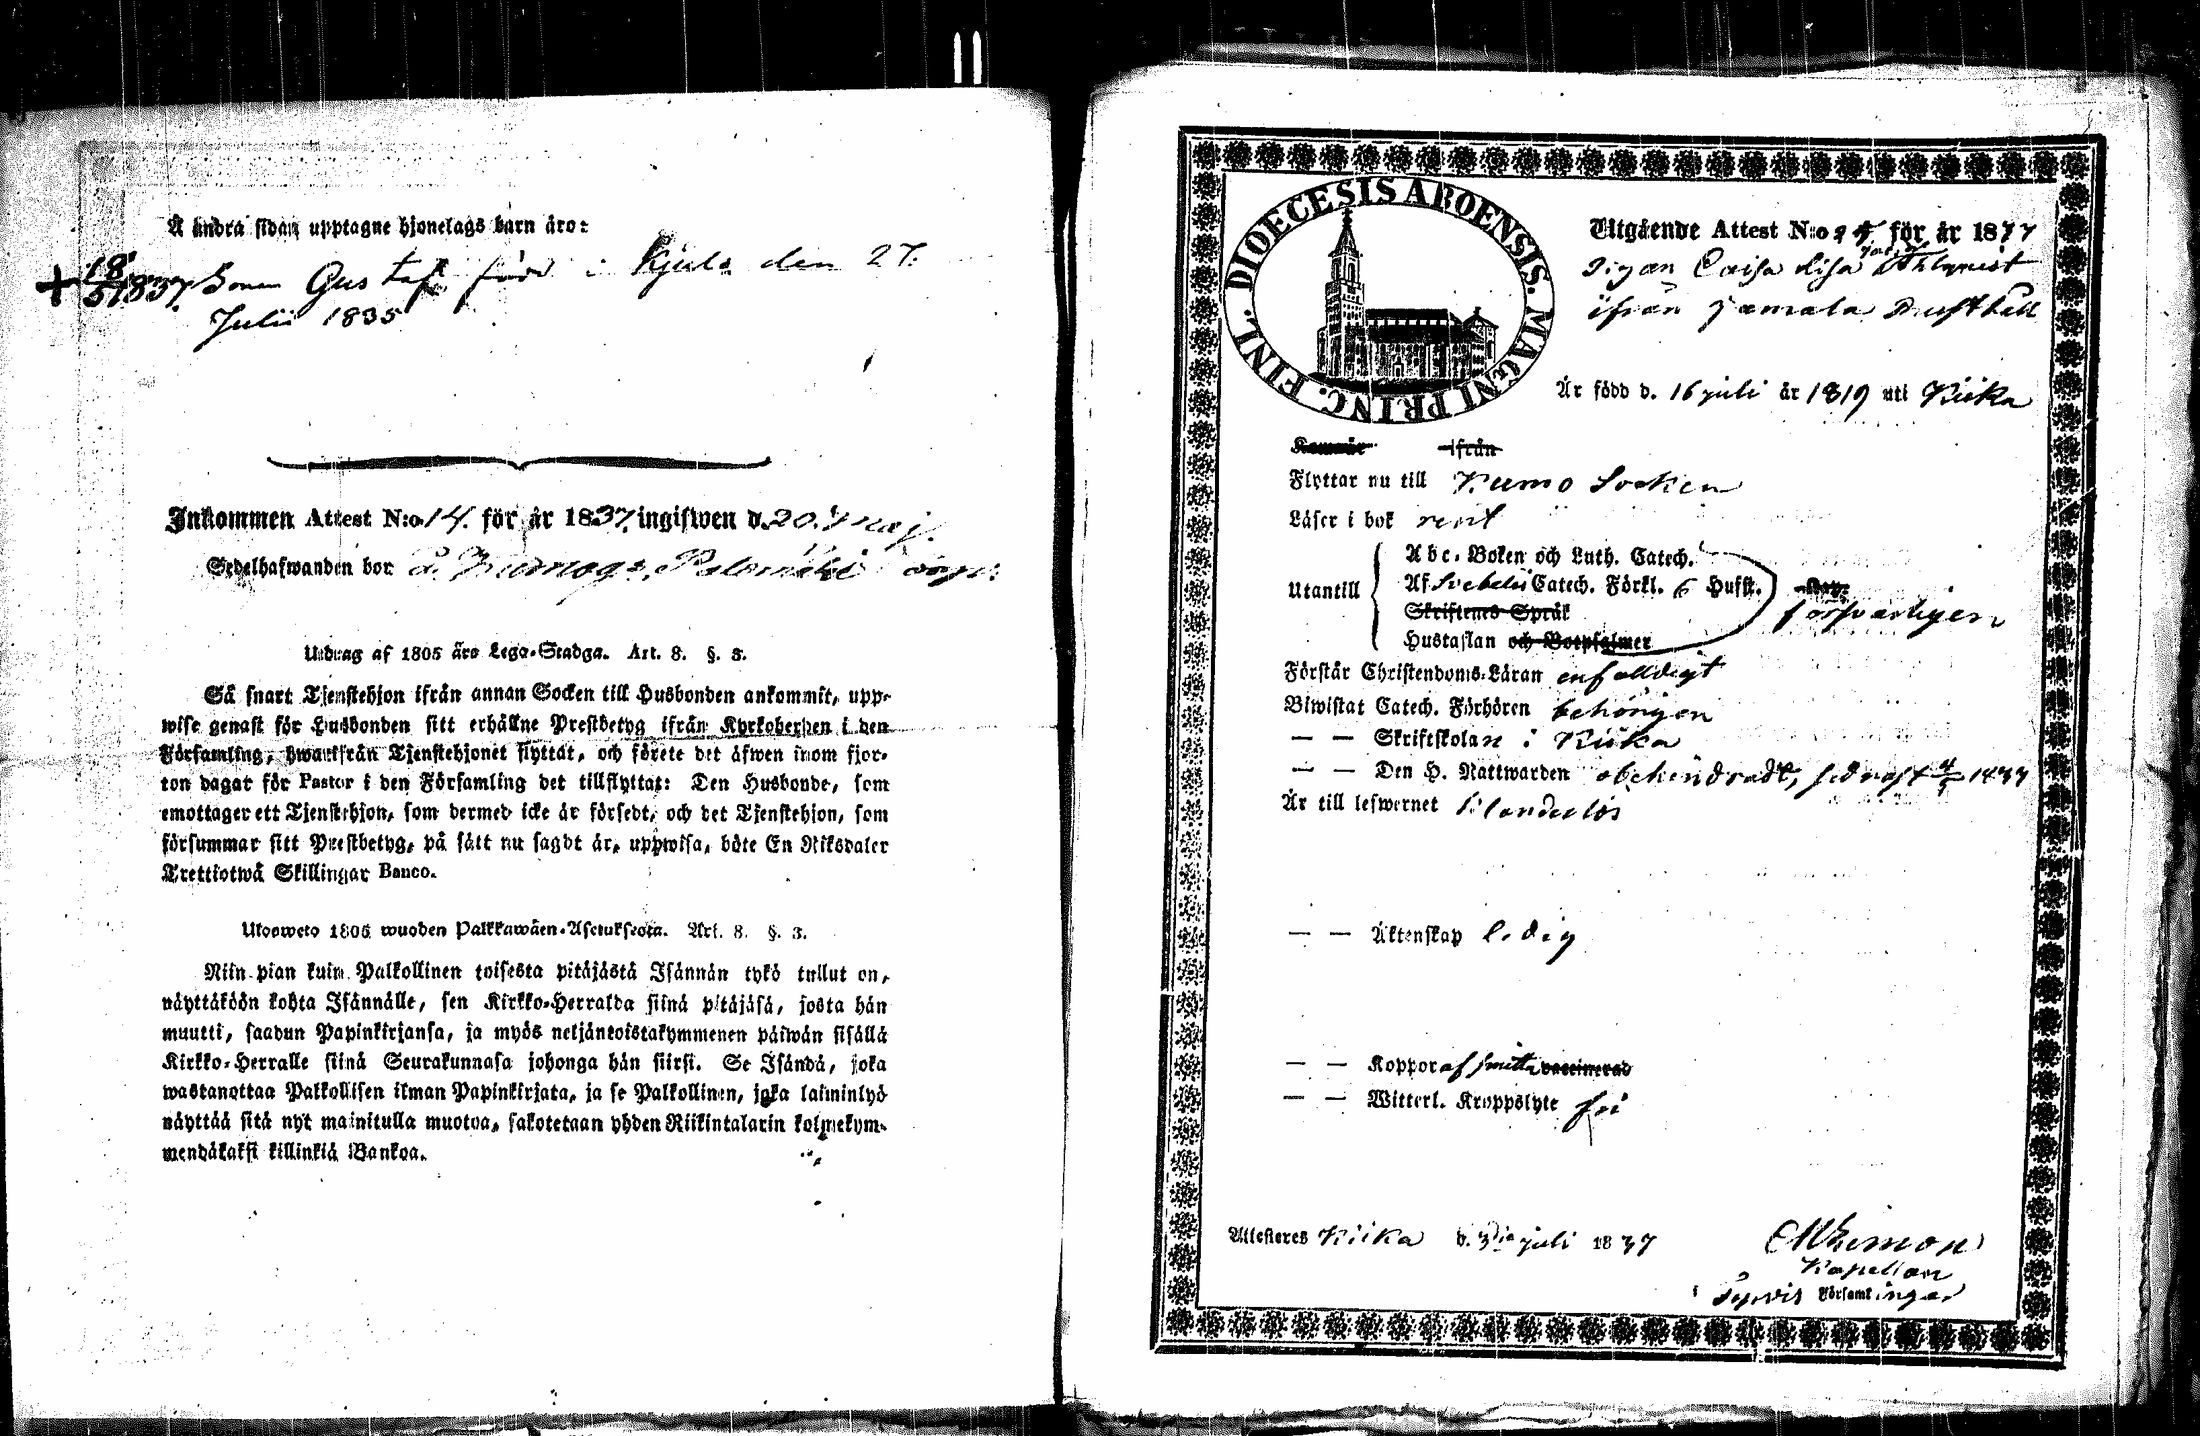 Å andra sidan upptagne hjonelags barn äro:
+ 18/5 1837. Sonen Gustaf född i Kjulo den 27.
Julii 1835
Inkommen Attest N:o 14. för år 1837. ingifwen d. 20. Maj.
Sedelhafwanden bor å Kumoga,
Utdrag af 1805 års Lego-Stadga. Art. 8. §. 3.
Så snart Tjenstehjon ifrån annan Socken till Husbonden ankommit, upp-
wise genast för Husbonden sitt erhållne Prestbetyg ifrån Kyrkoherden i den
Församling, hwarifrån Tjenstehjonet flyttat, och förete det äfwen inom fjor-
ton dagar för Pastor i den Församling det tillflyttat: Den Husbonde, som
emottager ett Tjenstehjon, som dermed icke är försedt, och det Tjenstehjon, som
försummar sitt Prestbetyg, på sätt nu sagdt är, uppwisa, böte En Riksdaler
Trettiotwå Skillingar Banco.
Utosweto 1805 wuoden Palkkawäen-Asetuksesta. Art. 8. §. 3.
Niin pian kuin Palkollinen toisesta pitäjästä Isännän tykö tullut on,
näyttäköön kohta Isännälle, sen Kirkko-Herralda siinä pitäjäsä, josta hän
muutti, saadun Papinkirjansa, ja myös neljäntoistakymmenen päiwän sisällä
Kirkko-Herralle siinä Seurakunnasa johonga hän siirsi. Se Isändä, joka
wastanottaa Palkollisen ilman Papinkirjata, ja se Palkollinen, joka laiminlyö
näyttää sitä nyt mainitulla muotoa, sakotetaan yhden Riikintalarin kolmekym-
mendäkaksi killinkiä Bankoa.
DIOECESIS ABOENSIS. MAGNI PRINC. FINL.
Utgående Attest N:o 25 för år 1837
Pigan Caisa Lisa Ahlqvist
ifrån Jamala Rusthåll
Är född d. 16 juli år 1819 uti Kiika
Kommer ifrån
Flyttar nu till Kumo Socken
Läser i bok rent
Utantill
Abc-Boken och Luth. Catech.
Af Svebelii Catech. Förkl. 6 Hufst.
Skriftenes Språk
Hustaflan och Botpsalmer
försvarligen
Förstår Christendoms-Läran enfalldigt
Biwistat Catech. Förhören behörigen
— — Skriftskolan i Kiika
— — Den H. Nattwarden obehindradt, sednast 1837
Är till lefwernet klanderlös
— — Äktenskap ledig
— — Koppor af smitta vaccinerad
— — Witterl. Kroppslyte fri
Attesteras Kiika d. 3die juli 1837
Kapellan
Tyrvis Församlingar